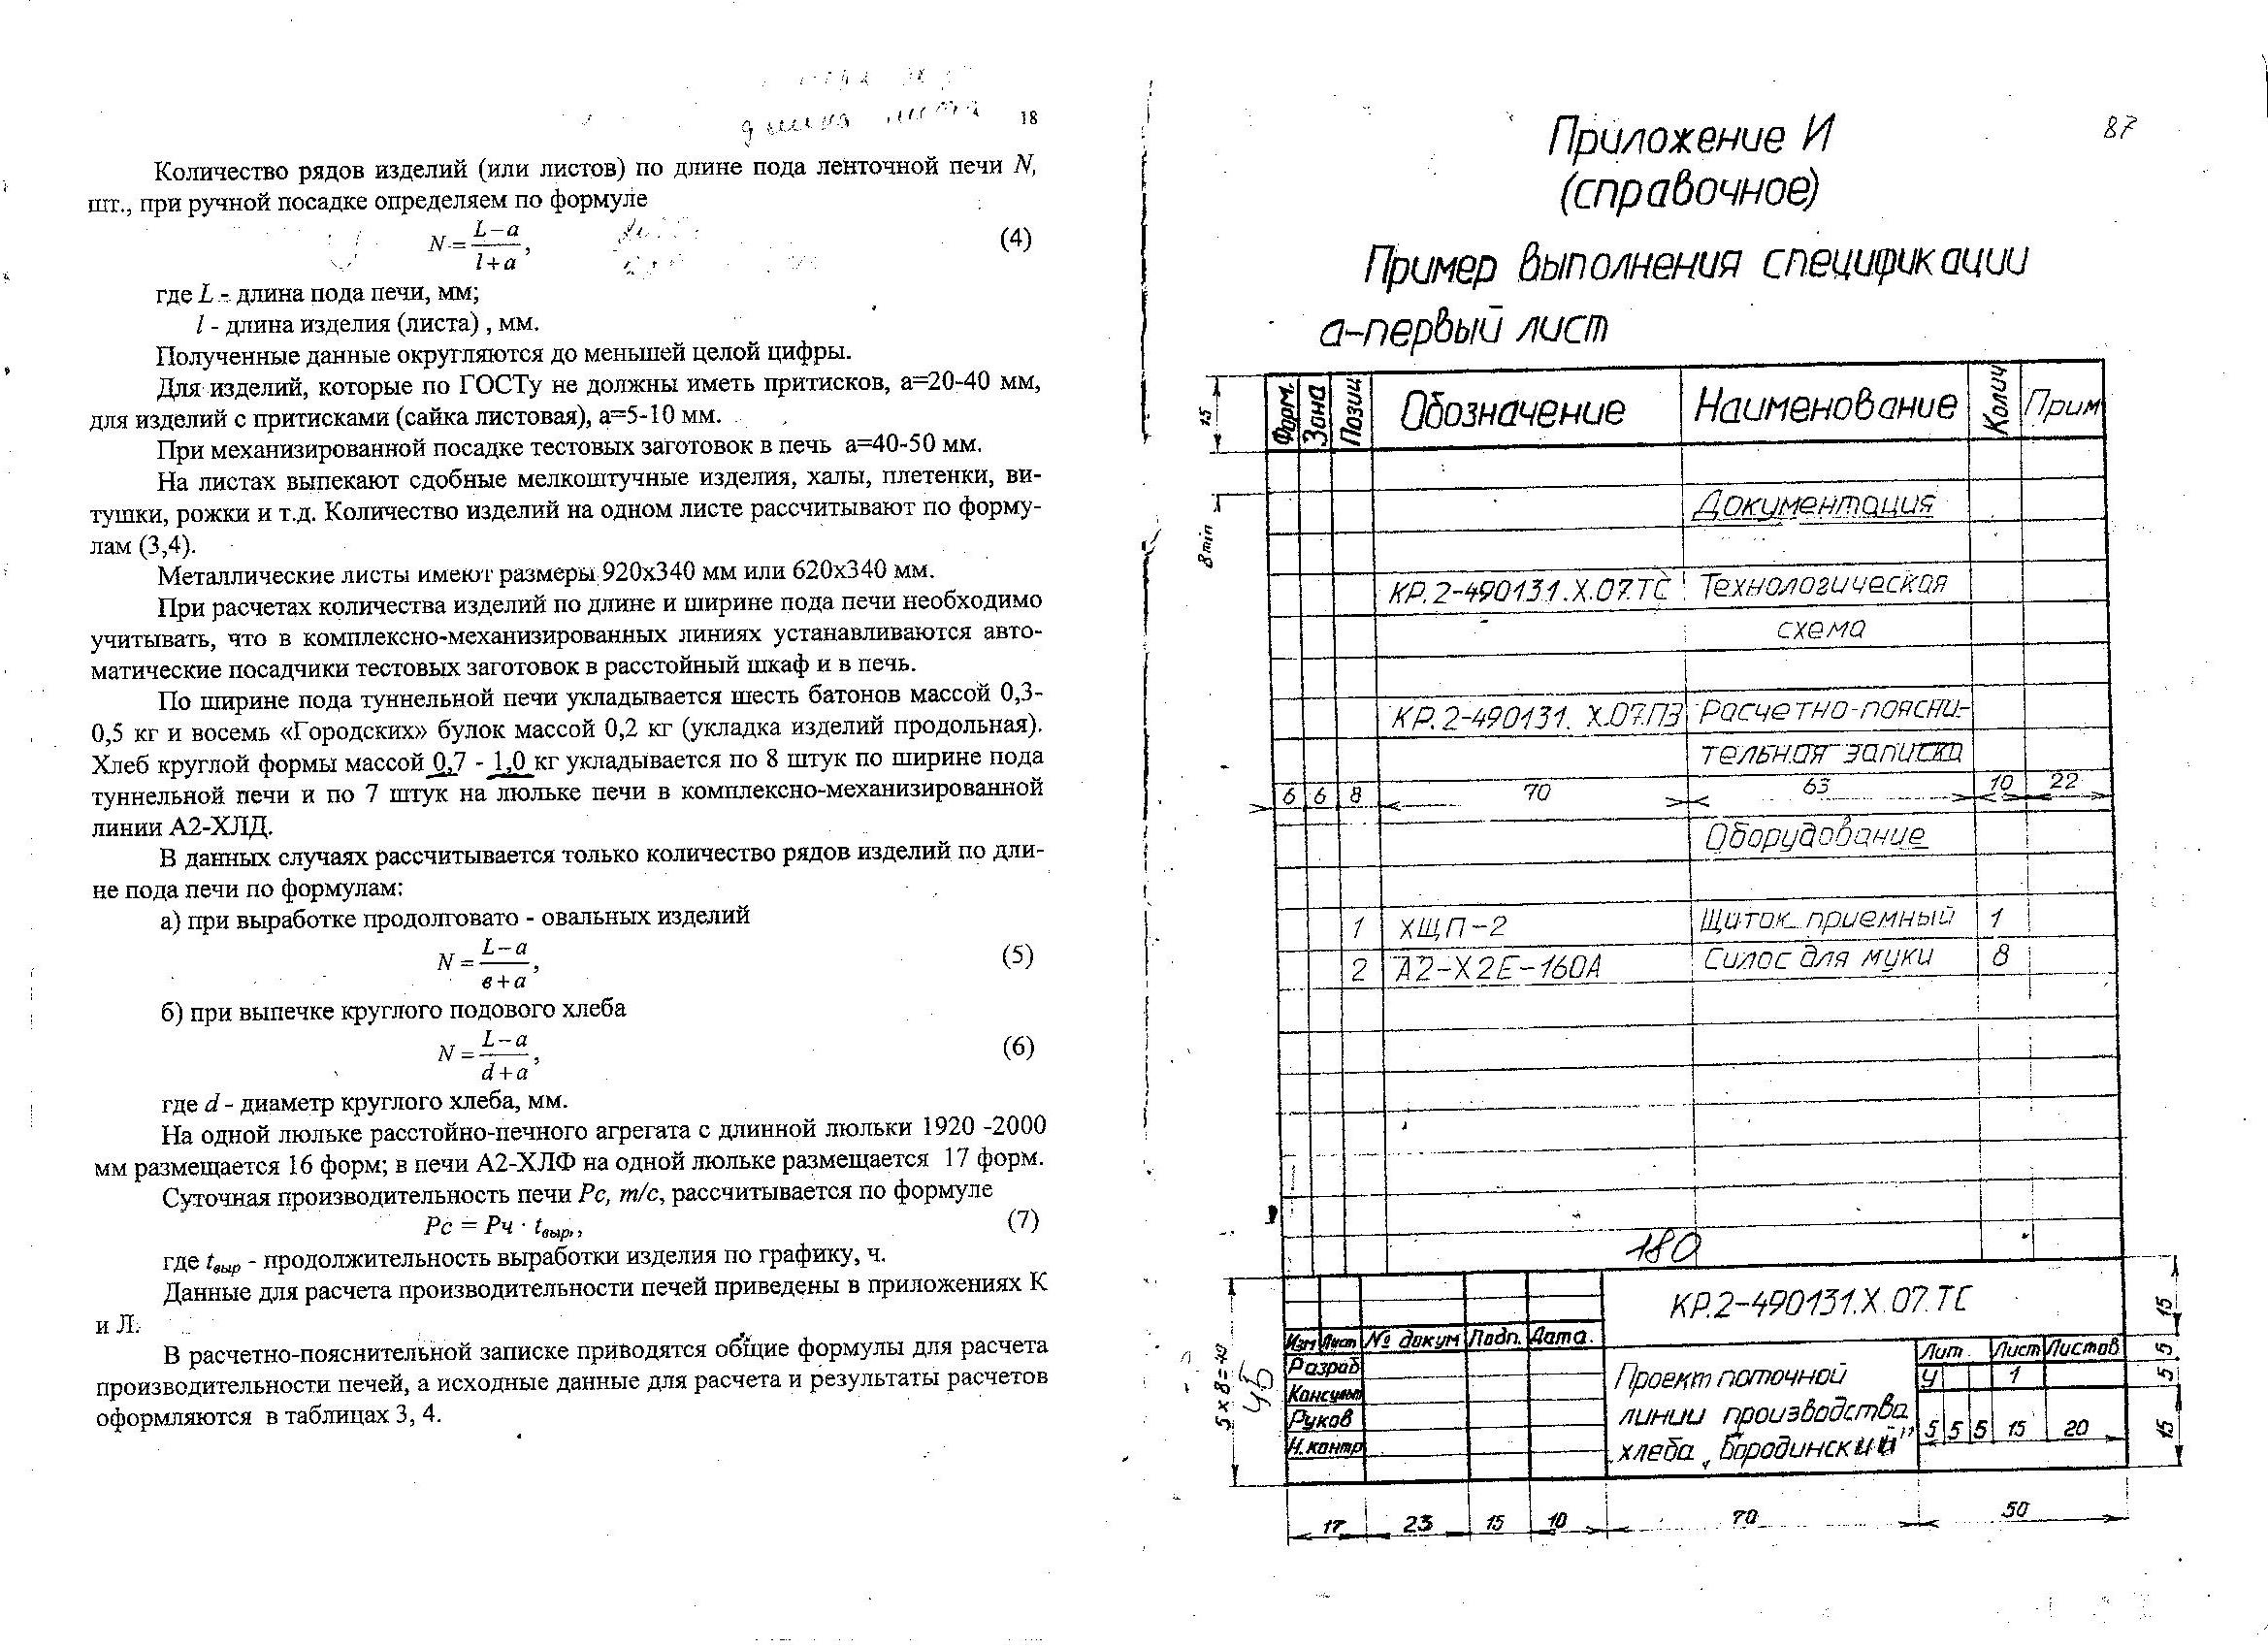 длина листа
18
Количество рядов изделий (или листов) по длине пода ленточной печи N,
шт., при ручной посадке определяем по формуле
N = (L-a)/(l+a), (4)
где L - длина пода печи, мм;
l - длина изделия (листа) , мм.
Полученные данные округляются до меньшей целой цифры.
Для изделий, которые по ГОСТу не должны иметь притисков, а=20-40 мм,
для изделий с притисками (сайка листовая), а=5-10 мм.
При механизированной посадке тестовых заготовок в печь а=40-50 мм.
На листах выпекают сдобные мелкоштучные изделия, халы, плетенки, ви-
тушки, рожки и т.д. Количество изделий на одном листе рассчитывают по форму-
лам (3,4).
Металлические листы имеют размеры 920х340 мм или 620х340 мм.
При расчетах количества изделий по длине и ширине пода печи необходимо
учитывать, что в комплексно-механизированных линиях устанавливаются авто-
матические посадчики тестовых заготовок в расстойный шкаф и в печь.
По ширине пода туннельной печи укладывается шесть батонов массой 0,3-
0,5 кг и восемь «Городских» булок массой 0,2 кг (укладка изделий продольная).
Хлеб круглой формы массой 0,7 - 1,0 кг укладывается по 8 штук по ширине пода
туннельной печи и по 7 штук на люльке печи в комплексно-механизированной
линии А2-ХЛД.
В данных случаях рассчитывается только количество рядов изделий по дли-
не пода печи по формулам:
а) при выработке продолговато - овальных изделий
N = (L-a)/(в+a), (5)
б) при выпечке круглого подового хлеба
N = (L-a)/(d+a), (6)
где d - диаметр круглого хлеба, мм.
На одной люльке расстойно-печного агрегата с длинной люльки 1920 -2000
мм размещается 16 форм; в печи А2-ХЛФ на одной люльке размещается 17 форм.
Суточная производительность печи Рс, т/с, рассчитывается по формуле
Рс = Рч · tвыр, , (7)
где tвыр - продолжительность выработки изделия по графику, ч.
Данные для расчета производительности печей приведены в приложениях К
и Л.
В расчетно-пояснительной записке приводятся общие формулы для расчета
производительности печей, а исходные данные для расчета и результаты расчетов
оформляются в таблицах 3, 4.
87
Приложение И
(справочное)
Пример выполнения спецификации
а-первый лист
15 Форм. Зона Позиц Обозначение Наименование Колич Прим
8min
Документация
КР.2-490131.Х.07.ТС Технологическая
схема
КР.2-490131. Х.07.ПЗ Расчетно-поясни-
тельная записка
6 6 8 70 63 10 22
Оборудование
1 ХЩП-2 Щиток приемный 1
2 А2-Х2Е-160А Силос для муки 8
180
КР.2-490131.Х.07.ТС 15
Изм Лист № докум Подп. Дата.
Лит. Лист Листов 5
Разраб
Консульт
Руков
Н.контр
5х8=40
Проект поточной
линии производства
хлеба „Бородинский”
У 1 5
5 5 5 15 20 15
17 23 15 10 70 50